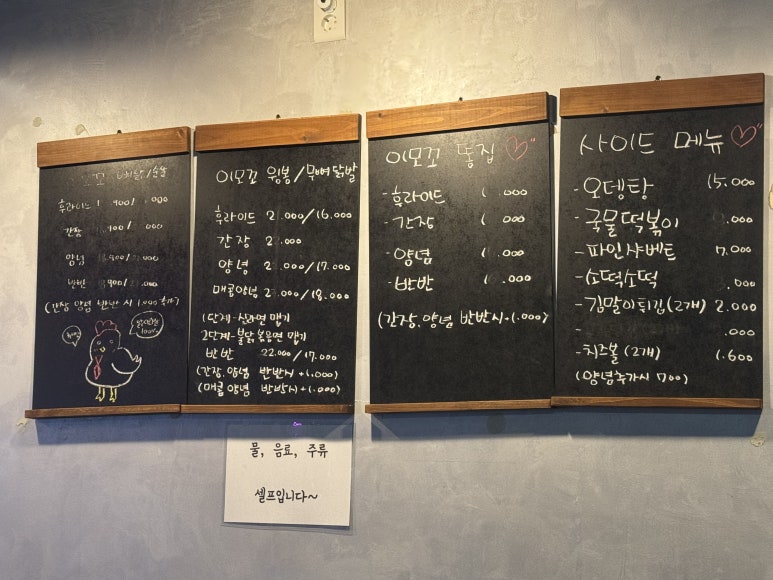 이모꼬 뼈닭/순살
후라이드 1 .900/ .000
간장 .900/ .000
양념 .900/ .000
반반 .900/ .000
(간장, 양념 반반시 1.000 추가)
이모꼬 윙봉/무뼈닭발
후라이드 2 .000/16.000
간장 2 .000
양념 2 .000/17.000
매콤양념 2 .000/18.000
1단계-신라면 맵기
2단계-불닭볶음면 맵기
반반 22.000/17.000
(간장, 양념 반반시 +1.000)
(매콤양념 반반시 +1.000)
이모꼬 똥집
-후라이드 1 .000
-간장 1 .000
-양념 1 .000
-반반 1 .000
(간장, 양념 반반시+1.000)
사이드 메뉴
-오뎅탕 15.000
-국물떡볶이 .000
-파인샤베트 7.000
-소떡소떡 .000
-김말이튀김(2개) 2.000
- .000
-치즈볼 (2개) 1.600
(양념추가시 700)
물, 음료, 주류
셀프입니다~